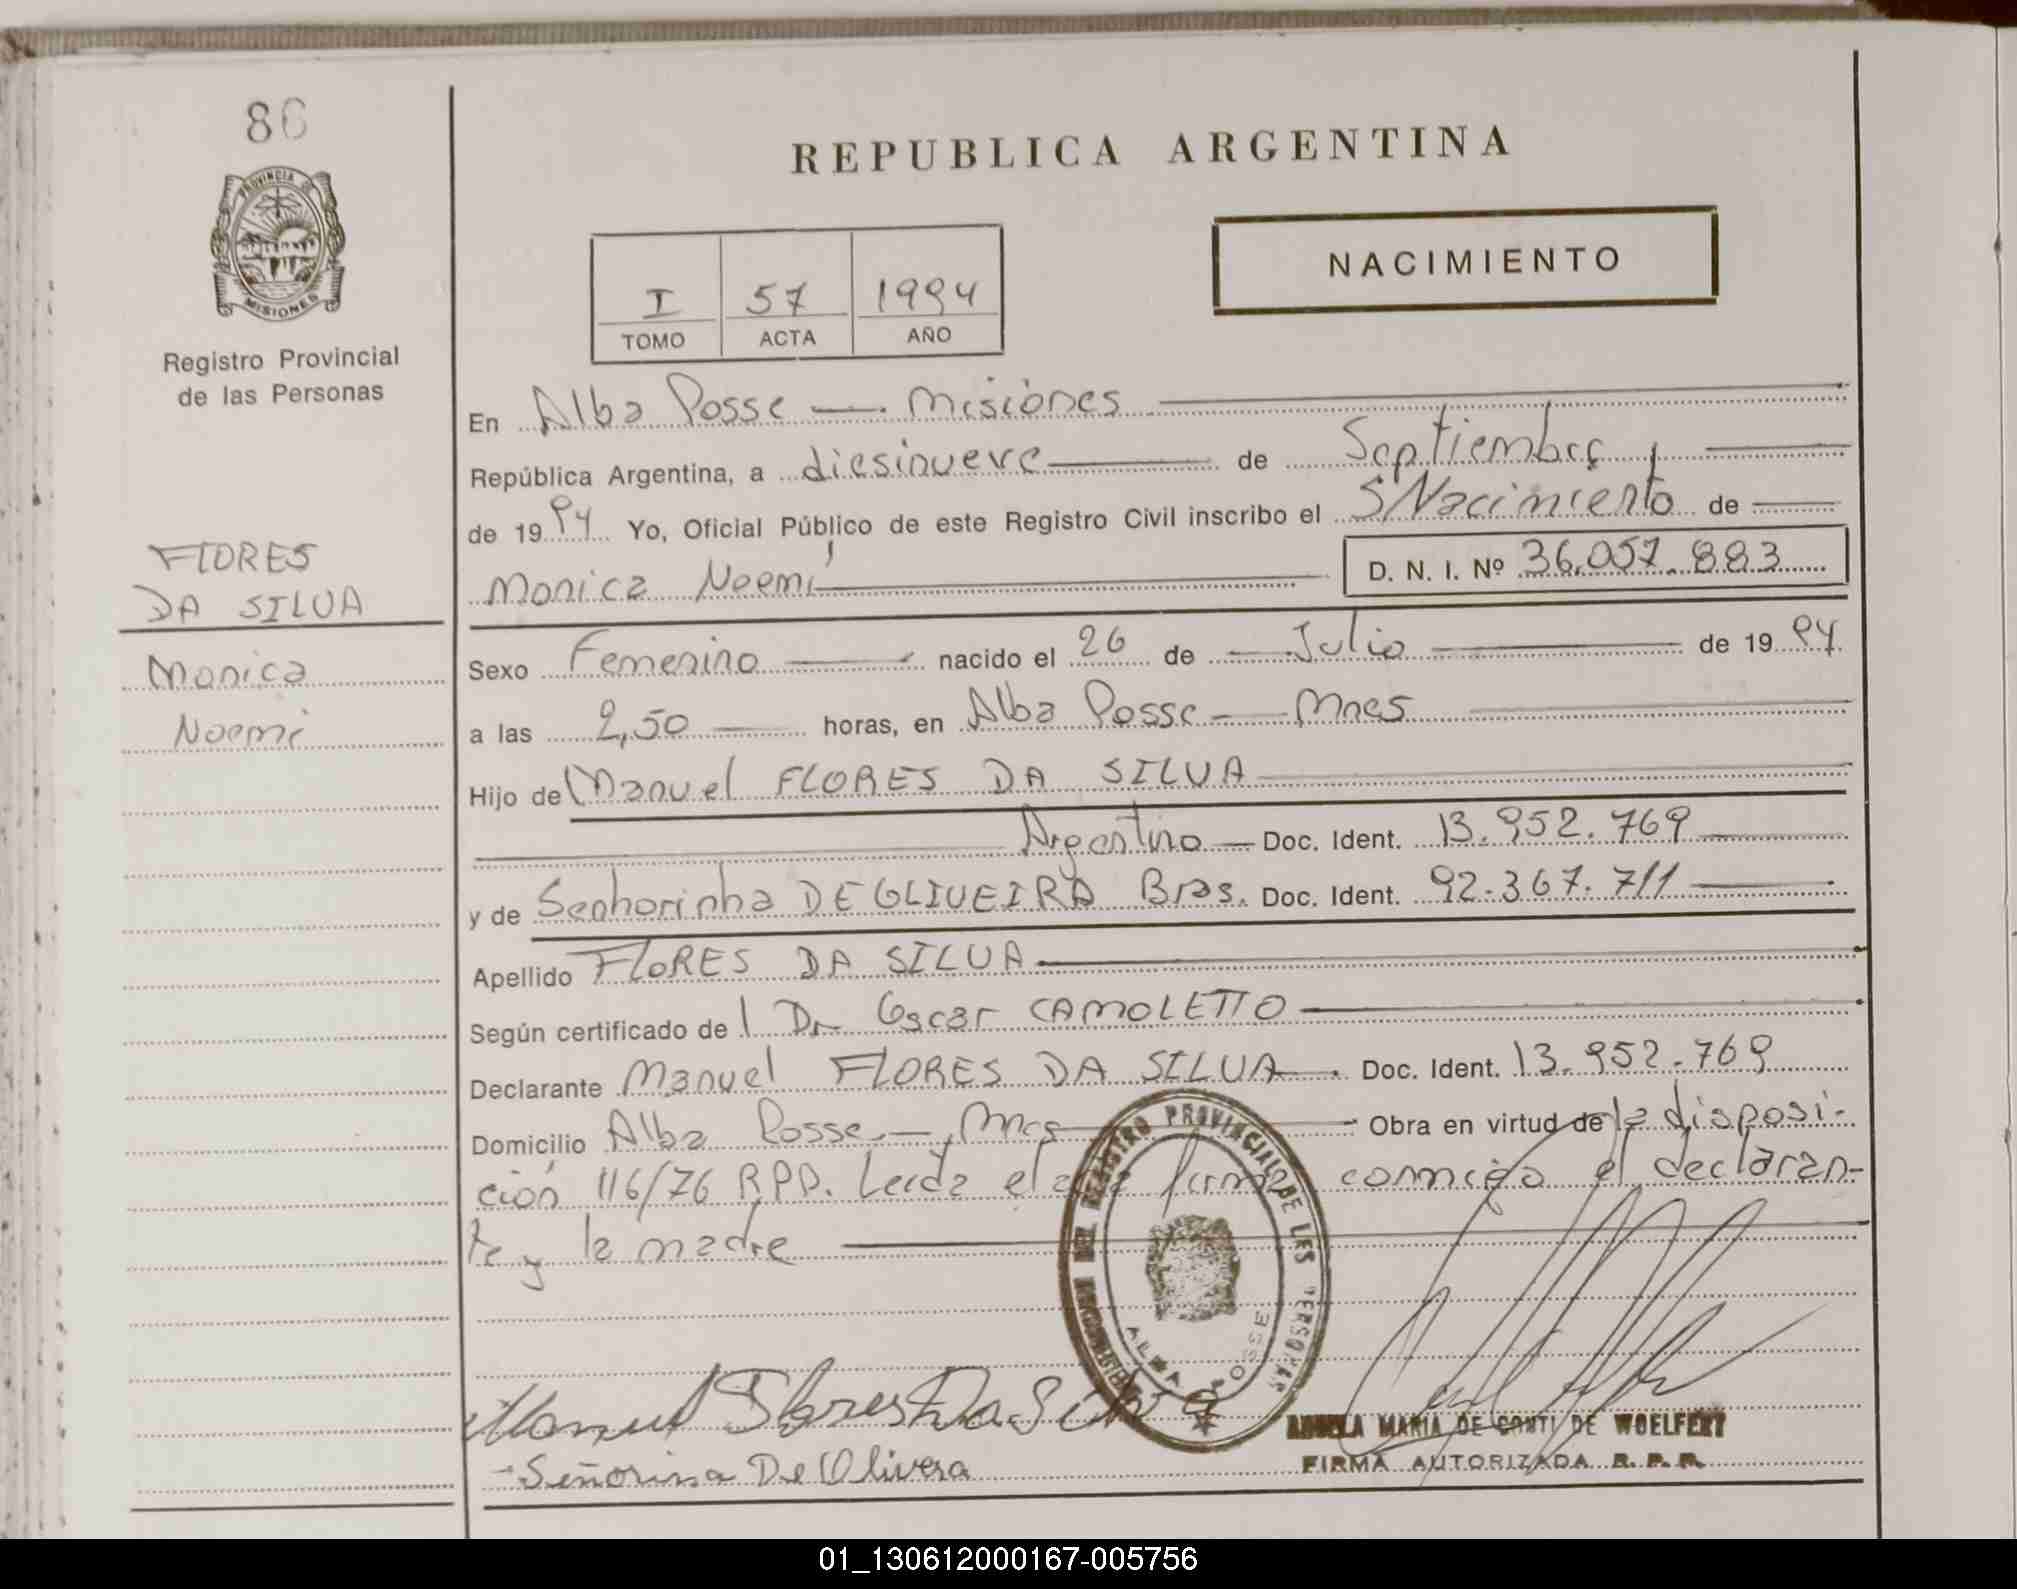 86
PROVINCIA DE
MISIONES
Registro Provincial
de las Personas
FLORES
DA SILVA
Monica
Noemi
REPUBLICA ARGENTINA
NACIMIENTO
I 57 1994
TOMO ACTA AÑO
En Alba Posse — Misiones
República Argentina, a diesinueve de Septiembre
de 1994 Yo, Oficial Público de este Registro Civil inscribo el S/Nacimiento de
Monica Noemí D. N. I. Nº 36.057.883
Sexo Femenino nacido el 26 de Julio de 1994
a las 2,50 horas, en Alba Posse — Mnes
Hijo de Manuel FLORES DA SILVA
Argentino — Doc. Ident. 13.952.769
y de Senhorinha DE OLIVEIRA Bras. Doc. Ident. 92.367.711
Apellido FLORES DA SILVA
Según certificado de l Dr Oscar CAMOLETTO
Declarante Manuel FLORES DA SILVA Doc. Ident. 13.952.769
Domicilio Alba Posse — Mnes Obra en virtud de la disposi-
ción 116/76 RPP. Leida el acta firma conmigo el declaran-
te y la madre
REGISTRO PROVINCIAL DE LES PERSONAS
ALBA POSSE
Manuel Flores Da Silva
Señorina De Olivera
ANGELA MARIA DE CONTI DE WOELFERT
FIRMA AUTORIZADA R. P. P.
01_130612000167-005756